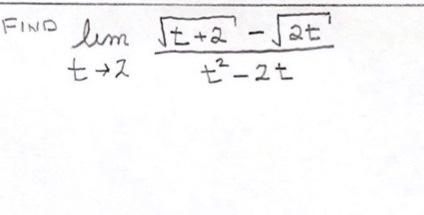 FIND lim √(t+2) - √(2t)
t→2 t² - 2t